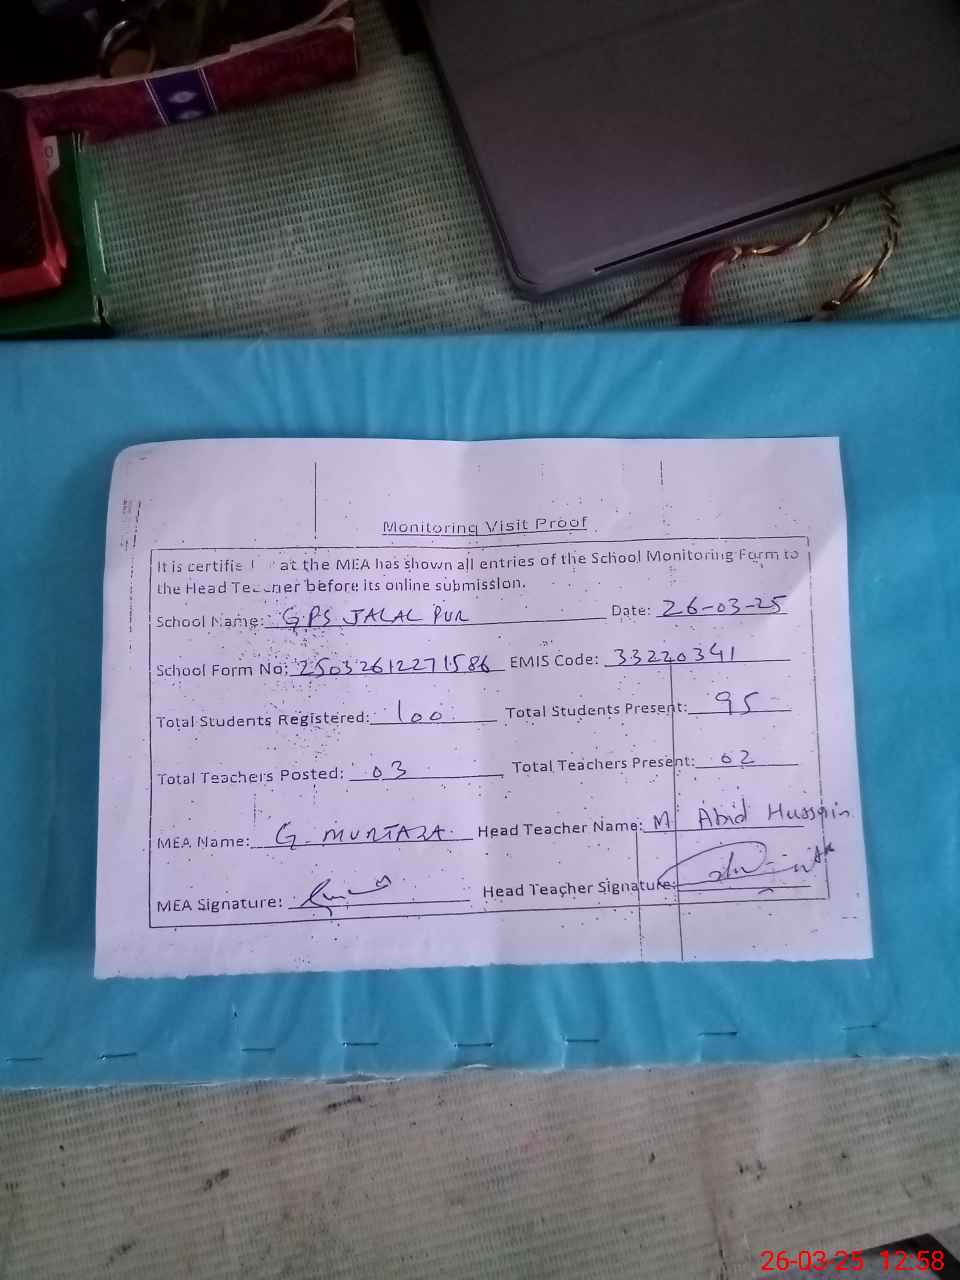 Monitoring Visit Proof
It is certifie at the MEA has shown all entries of the School Monitoring Form to
the Head Teacher before its online submission.
School Name: G.PS JALAL PUR Date: 26-03-25
School Form No: 250326122271586 EMIS Code: 33220341
Total Students Registered: 100 Total Students Present: 95
Total Teachers Posted: 03 Total Teachers Present: 02
MEA Name: G. MURTAZA. Head Teacher Name: M Abid Hussain
MEA Signature: Head Teacher Signature:
26-03-25 12:58